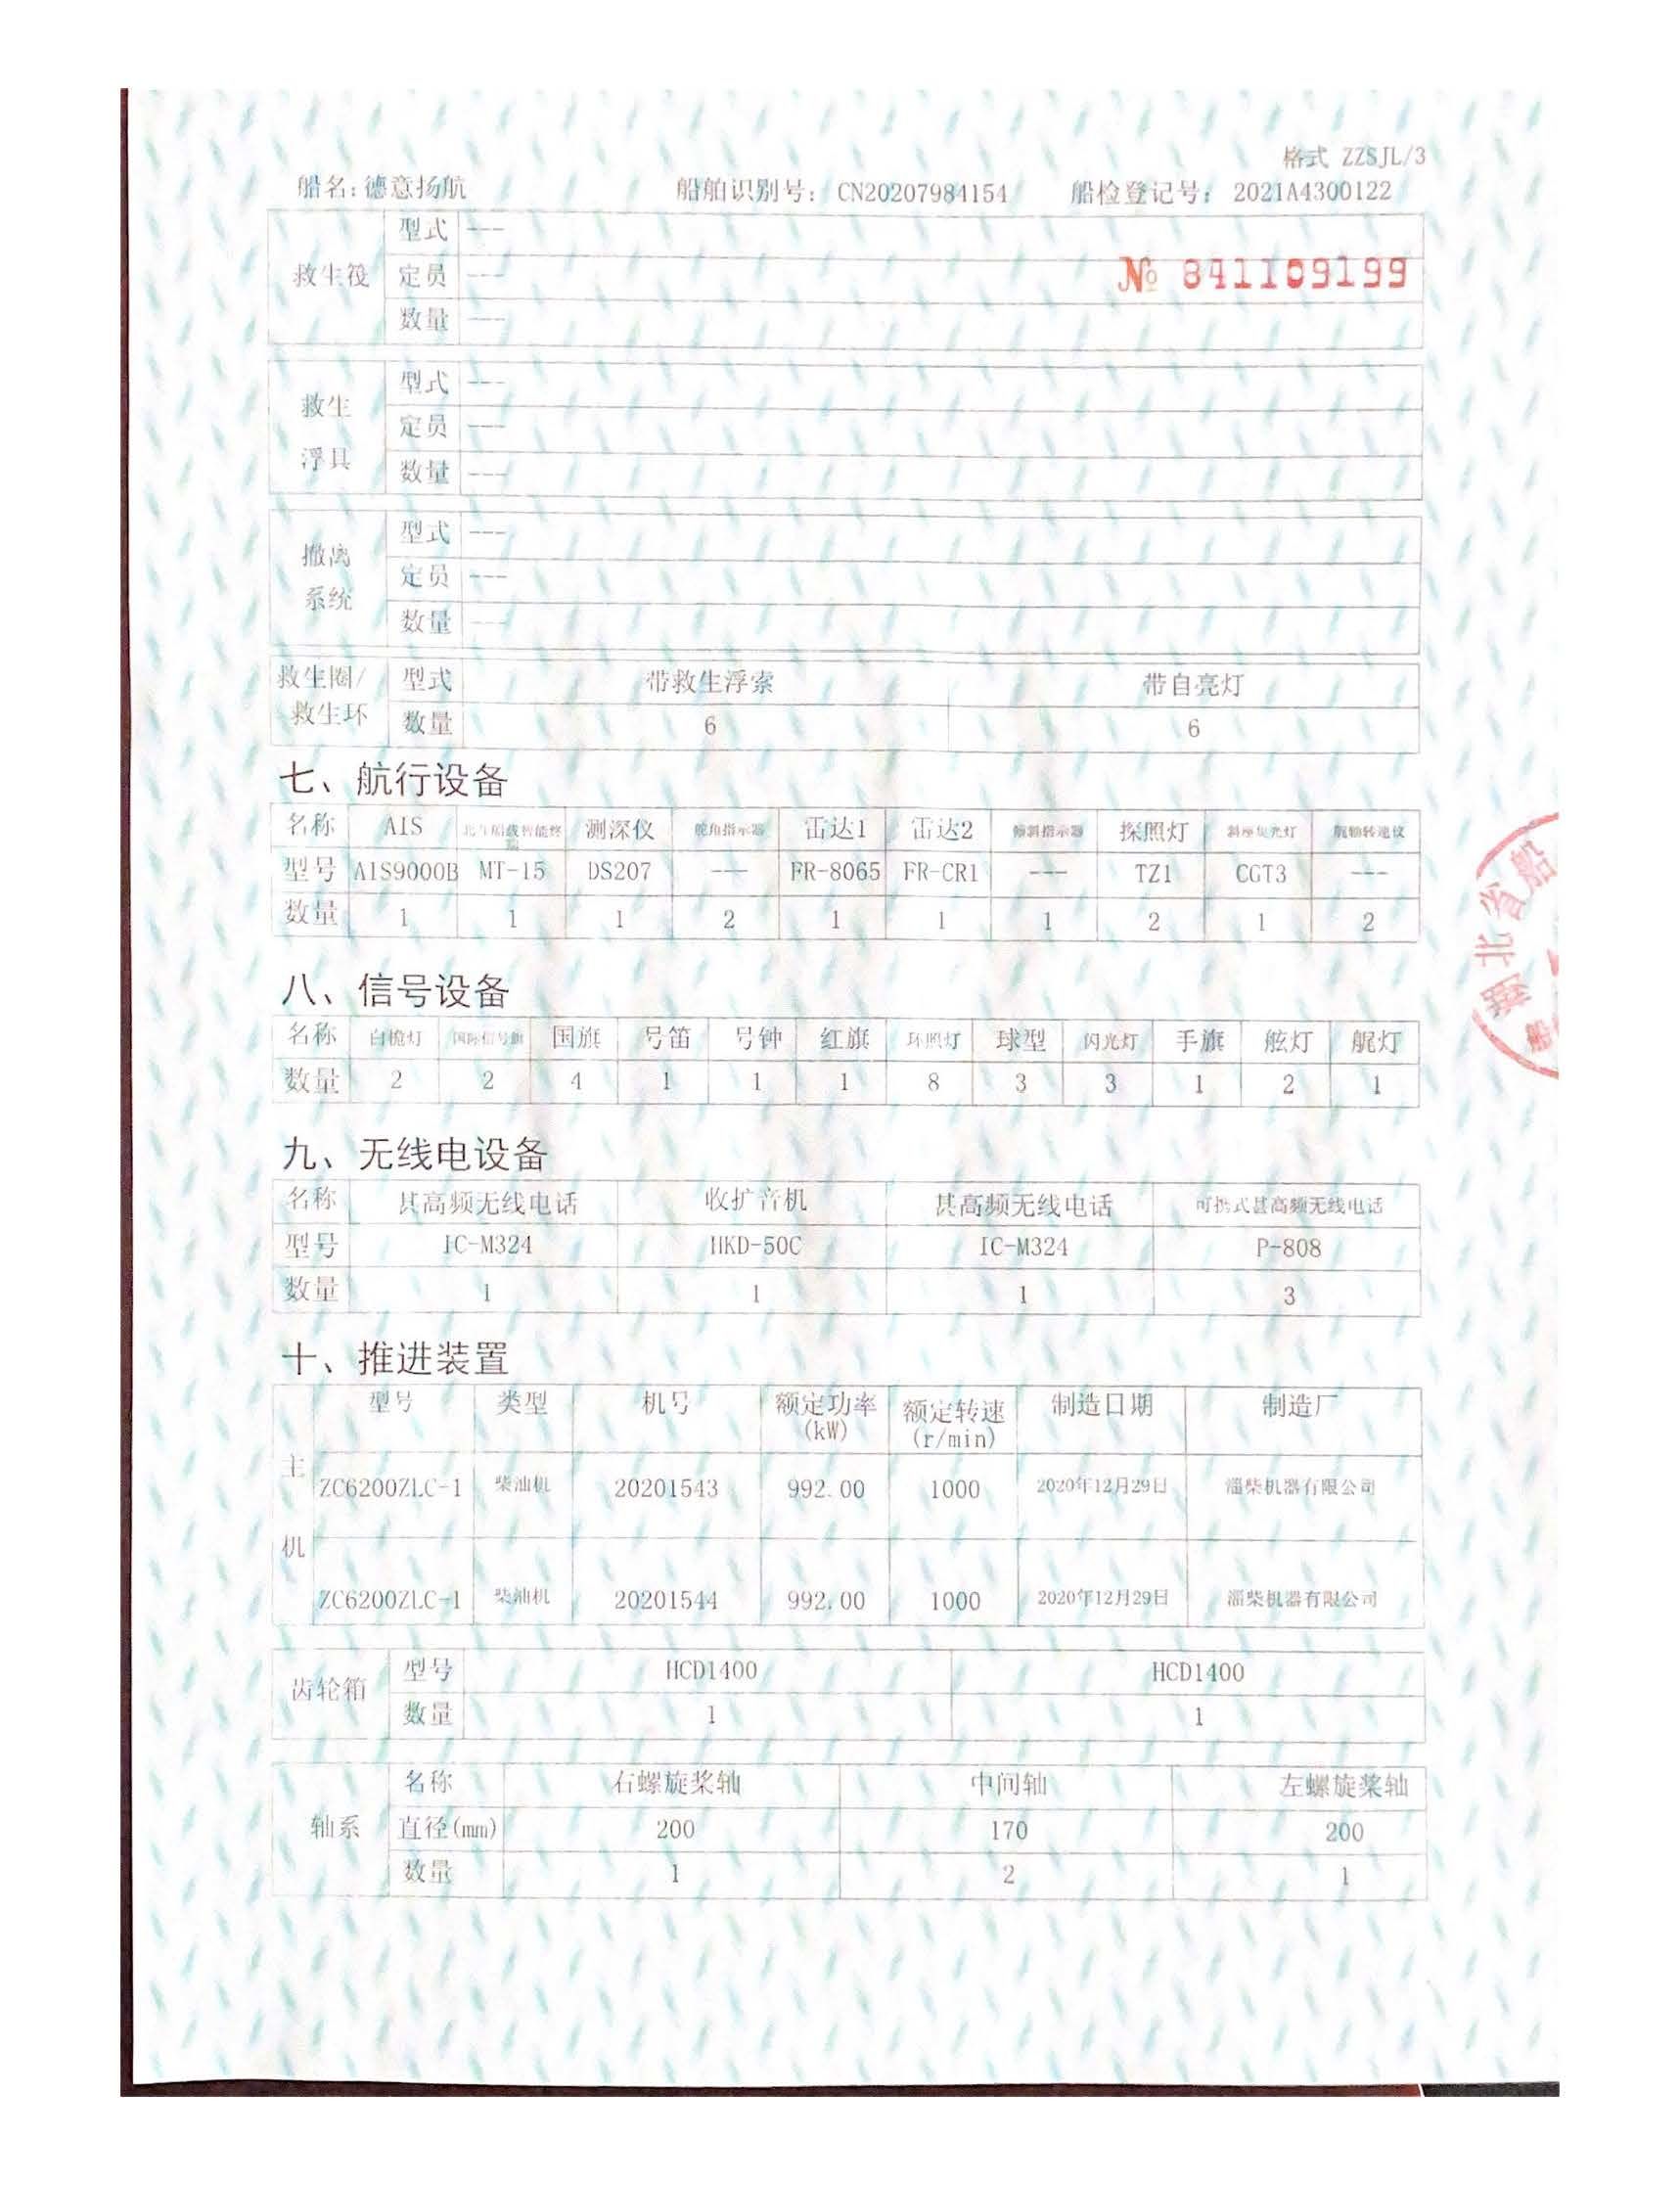 格式 ZZSJL/3
船名:德意扬航 船舶识别号: CN20207984154 船检登记号: 2021A4300122
№ 841109199
救生筏 型式 ---
定员 ---
数量 ---
救生浮具 型式 ---
定员 ---
数量 ---
撤离系统 型式 ---
定员 ---
数量 ---
救生圈/救生环 型式 带救生浮索 带自亮灯
数量 6 6
七、航行设备
名称 AIS 北斗船载智能终端 测深仪 舵角指示器 雷达1 雷达2 倾斜指示器 探照灯 艉轴转速仪
型号 AIS9000B MT-15 DS207 --- FR-8065 FR-CR1 --- TZ1 CGT3 ---
数量 1 1 1 2 1 1 1 2 1 2
八、信号设备
名称 白桅灯 国际信号旗 国旗 号笛 号钟 红旗 环照灯 球型 闪光灯 手旗 舷灯 艉灯
数量 2 2 4 1 1 1 8 3 3 1 2 1
九、无线电设备
名称 甚高频无线电话 收扩音机 甚高频无线电话 可携式甚高频无线电话
型号 IC-M324 HKD-50C IC-M324 P-808
数量 1 1 1 3
十、推进装置
主机 型号 类型 机号 额定功率(kW) 额定转速(r/min) 制造日期 制造厂
ZC6200ZLC-1 柴油机 20201543 992.00 1000 2020年12月29日 淄柴机器有限公司
ZC6200ZLC-1 柴油机 20201544 992.00 1000 2020年12月29日 淄柴机器有限公司
齿轮箱 型号 HCD1400 HCD1400
数量 1 1
轴系 名称 右螺旋桨轴 中间轴 左螺旋桨轴
直径(mm) 200 170 200
数量 1 2 1
湖北省船